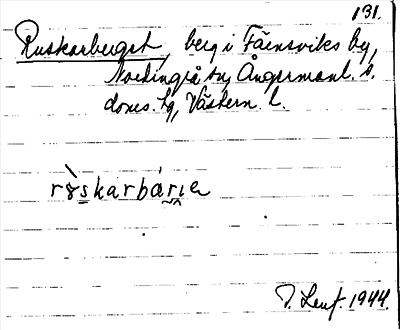 131.
Ruskarberget, berg i Fäensviks by,
Nordingrå sn, Ångermanl. s.
doms. tg, Västern. l.
rɤ̀skarbárıɐ
1944.